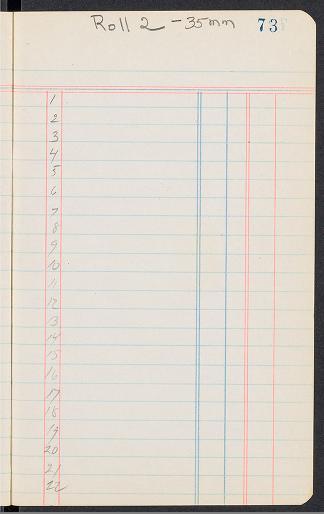 Roll 2 - 35mm 73
1
2
3
4
5
6
7
8
9
10
11
12
13
14
15
16
17
18
19
20
21
22